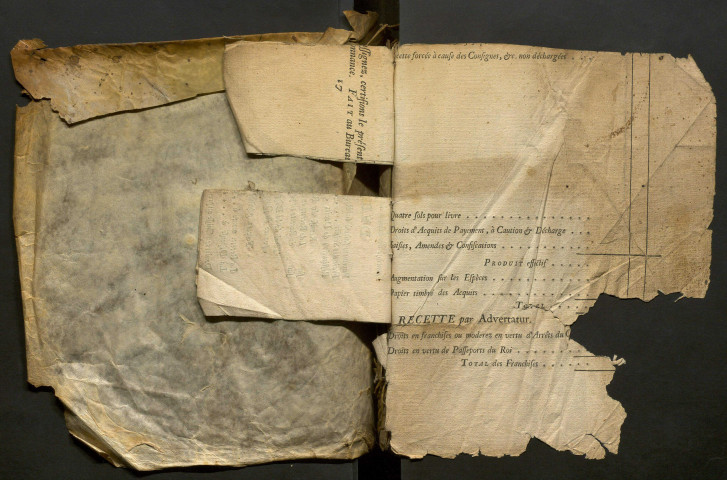 ssignez, certifions le présent
onnance. FAIT au Bureau
17
ecette forcée à cause des Consignes, &c. non déchargées . . .
Quatre sols pour livre . . . . . . . . . . . . . . .
Droits d'Acquits de Payement, à Caution & Décharge . . .
Saisies, Amendes & Confiscations . . . . . . . . . .
PRODUIT effectif . . . . .
Augmentation sur les Espèces . . . . . . . . . . . .
Papier timbré des Acquits . . . . . . . . . . . . .
TOTAL . . . . .
RECETTE par Advertatur.
Droits en franchises ou moderez en vertu d'Arrêts du C
Droits en vertu de Passeports du Roi . . . . . . . . .
TOTAL des Franchises . . . . . .